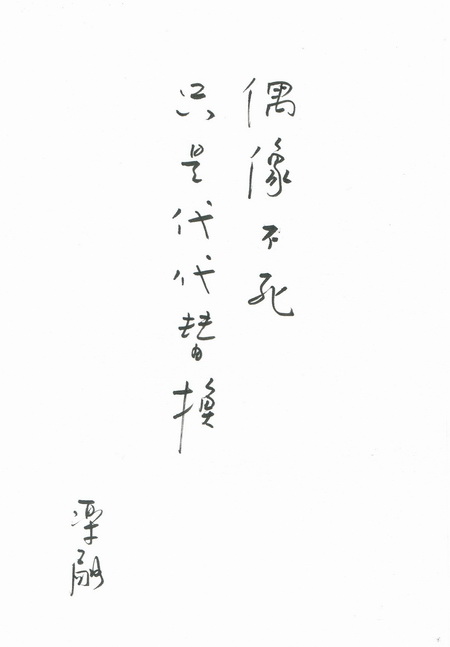 偶像不死
只是代代替換